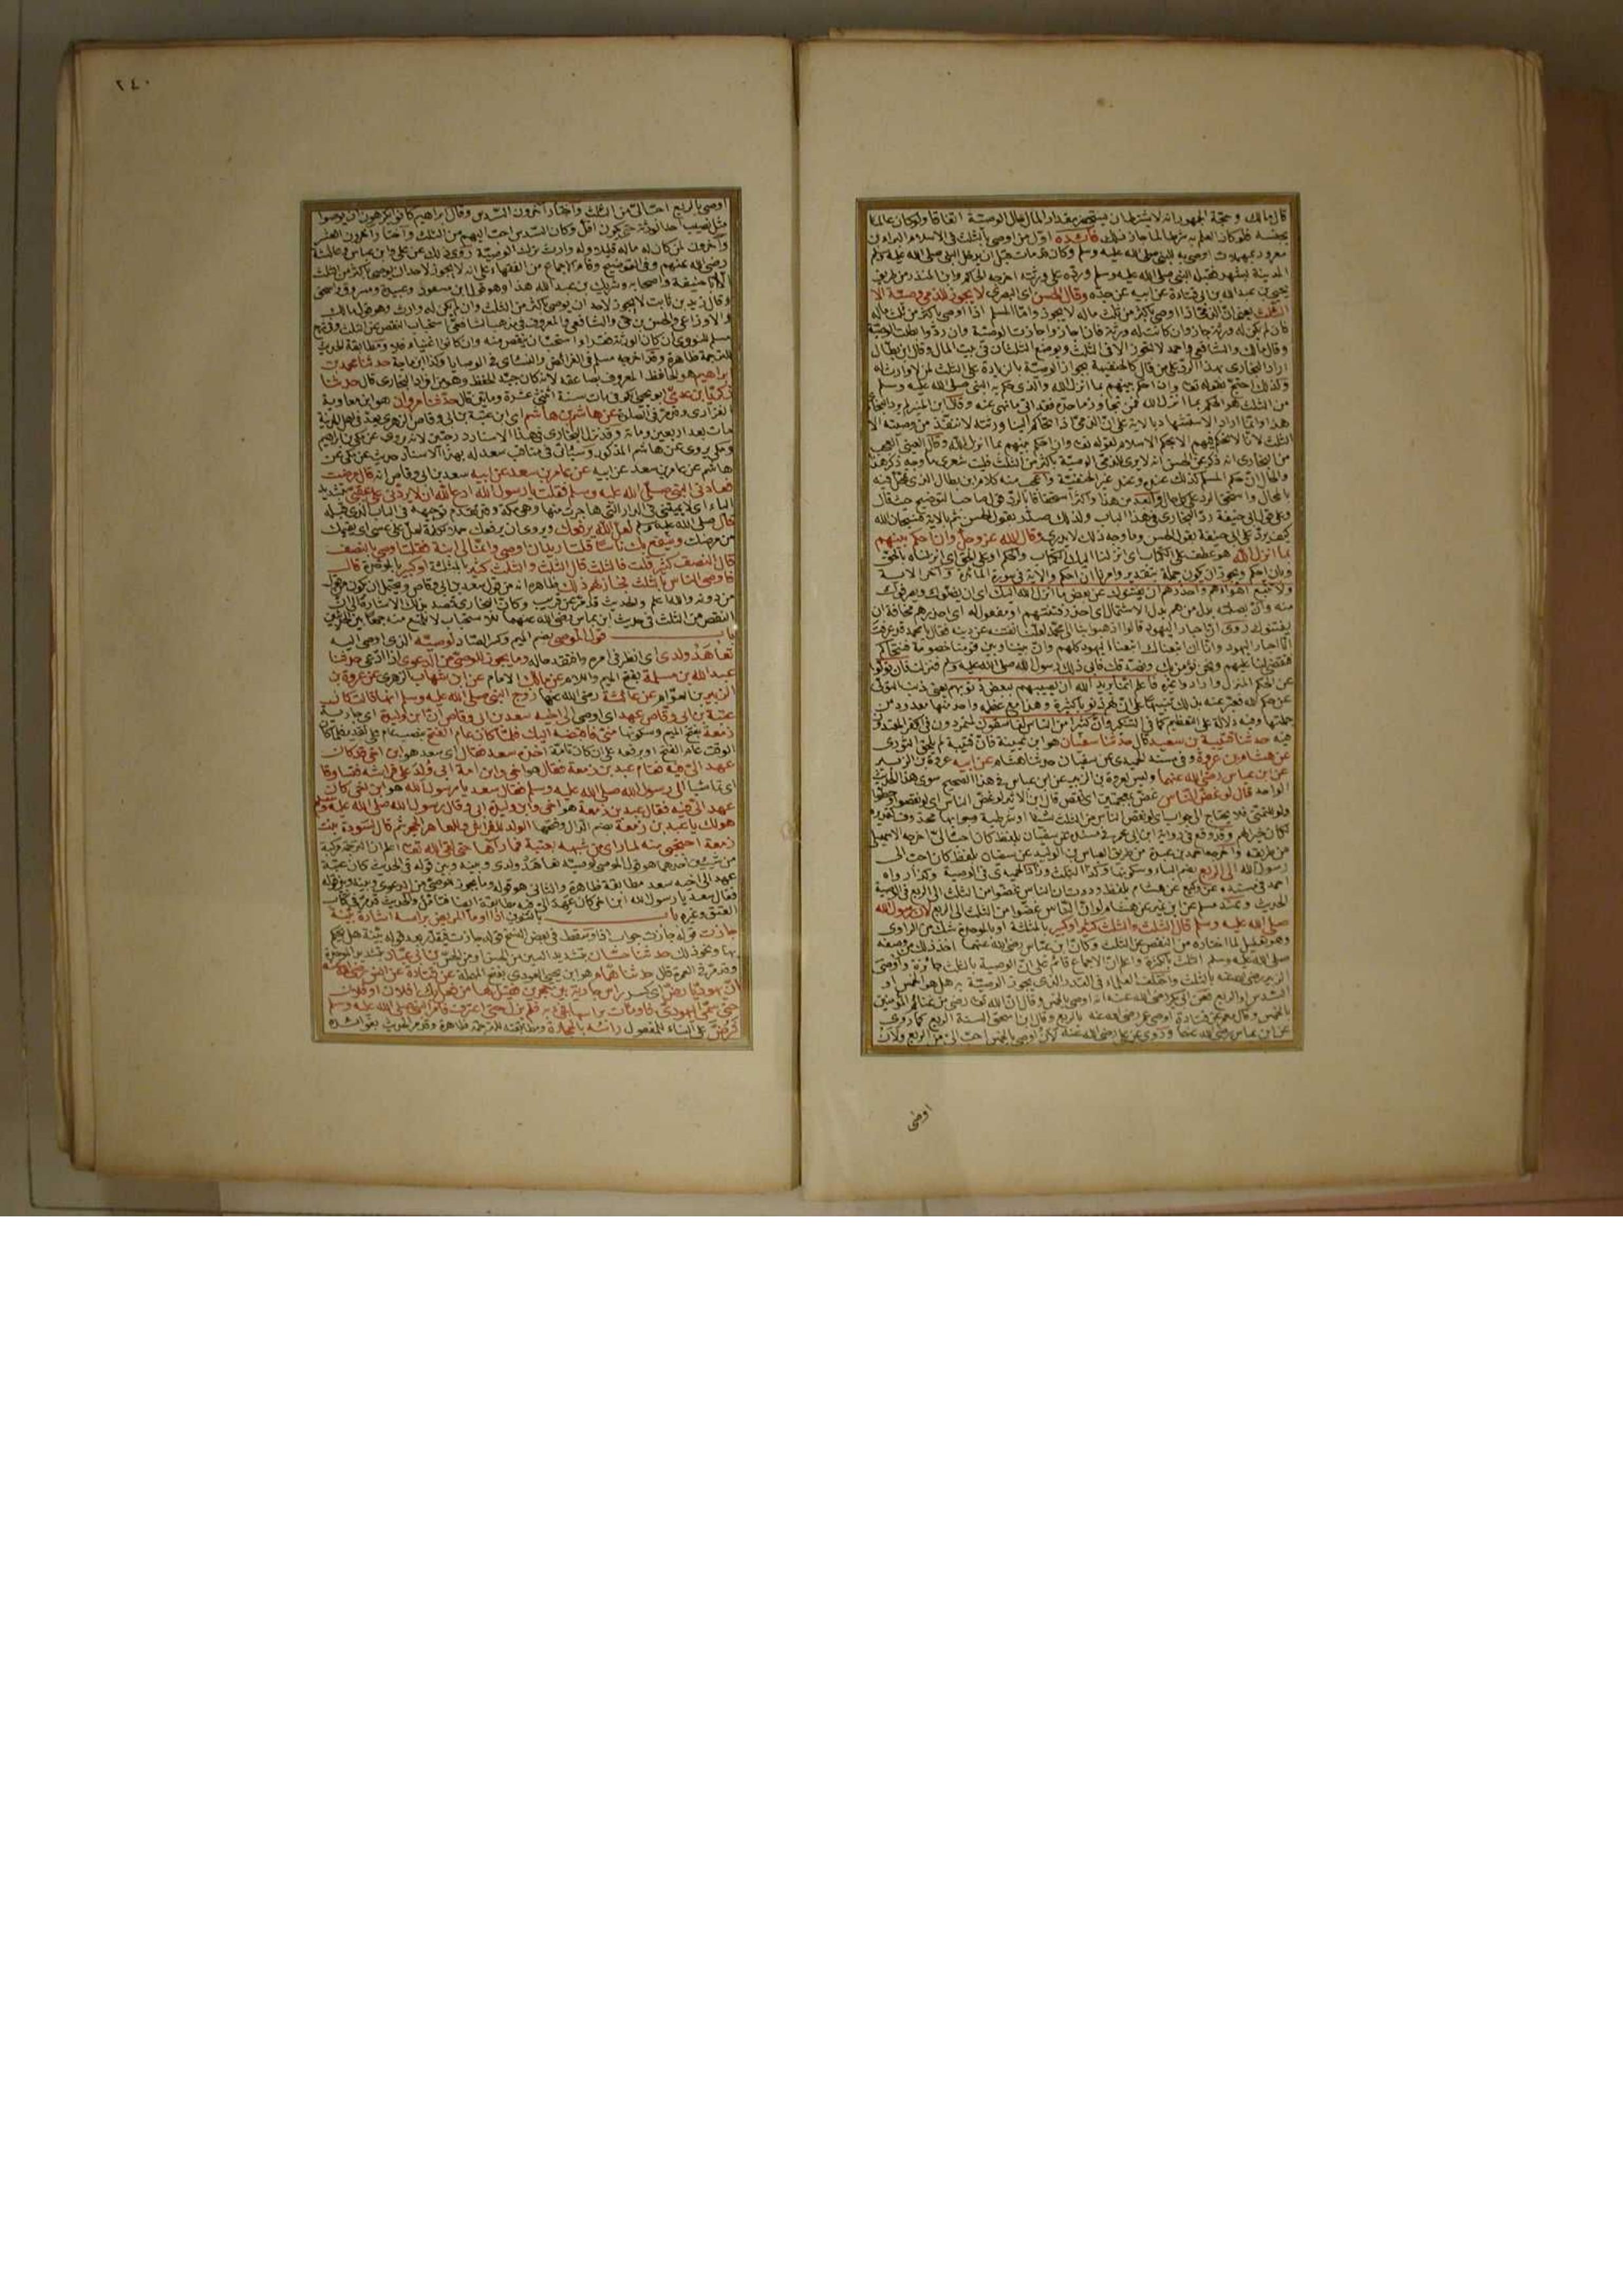 قال مالك وحجة الجمهور انه لا يشترط ان يستحضر مقدار المال حال الوصية اتفاقا ولو كان عالما
بجنسه فلو كان العلم به شرطا لما جاز ذلك فائدة اول من اوصى بالثلث في الاسلام البراء بن
معرور اوصى به للنبي صلى الله عليه وسلم وكان قد مات قبل ان يدخل النبي صلى الله عليه وسلم
المدينة بشهر فقبله النبي صلى الله عليه وسلم ورده على ورثته اخرجه الحاكم وابن المنذر من طريق
يحيى بن عبد الله بن ابي قتادة عن ابيه عن جده وقال الحسن اي البصري لا يجوز للذمي وصية الا
الثلث يعني ان الذمي اذا اوصى باكثر من ثلث ماله لا يجوز واما المسلم اذا اوصى باكثر من ثلث ماله
فان لم يكن له ورثة جاز وان كانت له ورثة فان اجازوا جازت الوصية وان ردوا بطلت الوصية
وقال مالك والشافعي واحمد لا تجوز الا في الثلث ويوضع الثلثان في بيت المال وقال ابن بطال
اراد البخاري بهذا الرد على من قال كالحنفية بجواز الوصية بالزيادة على الثلث لمن لا وارث له
وكذلك احتج بقوله تعا وان احكم بينهم بما انزل الله والذي حكم به النبي صلى الله عليه وسلم
من الثلث هو الحكم بما انزل الله فمن تجاوز ما حده فقد اتى ما نهي عنه وقال ابن المنير لم يرد البخاري
هذا وانما اراد الاستشهاد بالاية على ان الذمي اذا تحاكم الينا ورثته لا ننفذ من وصيته الا
الثلث لانا لا نحكم فيهم الا بحكم الاسلام لقوله تعا وان احكم بينهم بما انزل الله وقال العيني العجب
من البخاري انه ذكر عن الحسن انه لا يرى للذمي الوصية باكثر من الثلث فليت شعري ما وجه ذكر هذا
والحال ان حكم المسلم كذلك عنده وعند غير الحنفية واعجب منه كلام ابن بطال الذي تمحل فيه
بالمحال واستحق الرد على كل حال وابعد من هذا واكثر استحقاقا بالرد قول صاحب التوضيح حيث قال
وعلى قول ابي حنيفة رد البخاري في هذا الباب ولذلك صدر بقول الحسن ثم بالاية فسبحان الله
كيف يرد على ابي حنيفة بقول الحسن وما وجه ذلك لا يدرى وقال الله عز وجل وان احكم بينهم
بما انزل الله هو عطف على الكتاب اي انزلنا اليك الكتاب والحكم او على الحق اي انزلناه بالحق
وبان احكم ويجوز ان يكون جملة بتقدير وامرنا ان احكم والاية في سورة المائدة واخر الاية
ولا تتبع اهواءهم واحذرهم ان يفتنوك عن بعض ما انزل الله اليك اي ان يضلوك ويصرفوك
منه وان بصلته بدل من هم بدل الاشتمال اي احذر فتنتهم او مفعول له اي احذرهم مخافة ان
يفتنوك روي ان احبار اليهود قالوا اذهبوا بنا الى محمد لعلنا نفتنه عن دينه فقالوا يا محمد قد عرفت
انا احبار اليهود وانا ان اتبعناك اتبعنا اليهود كلهم وان بيننا وبين قومنا خصومة فنتحاكم
فتقضي لنا عليهم ونحن نؤمن بك ونصدقك فابى ذلك رسول الله صلى الله عليه وسلم فنزلت فان تولوا
عن الحكم المنزل وارادوا غيره فاعلم انما يريد الله ان يصيبهم ببعض ذنوبهم يعني ذنب التولي
عن حكم الله فعبر عنه بذلك تنبيها على ان لهم ذنوبا كثيرة وهذا مع عظمه واحد منها معدود من
جملتها وفيه دلالة على التعظيم كما في التنكير وان كثيرا من الناس لفاسقون لمتمردون في الكفر المعتدون
فيه حدثنا قتيبة بن سعيد قال حدثنا سفيان هو ابن عيينة فان قتيبة لم يلحق الثوري
عن هشام بن عروة وفي مسند الحميدي عن سفيان حدثنا هشام عن ابيه عروة بن الزبير
عن ابن عباس رضي الله عنهما وليس لعروة بن الزبير عن ابن عباس في هذا الصحيح سوى هذا الحديث
الواحد قال لو غض الناس غض بمعجمتين اي نقص قال ابن الاثير لو غض الناس اي لو نقصوا وحطوا
ولو للتمني فلا يحتاج الى جواب اي لو نقص الناس من الثلث شيئا او شرطية وجوابها محذوف تقديره
لكان خيرا لهم وقد وقع في رواية ابن ابي عمر في مسنده عن سفيان بلفظ كان احب الي اخرجه الاسمعيلي
من طريقه واخرجه احمد بن عبدة من طريق العباس بن الوليد عن سفيان بلفظ كان احب الى
رسول الله الى الربع بضم الباء وسكونها وكذا الثلث وزاد الحميدي في الوصية وكذا رواه
احمد في مسنده عن وكيع عن هشام بلفظ وددت ان الناس غضوا من الثلث الى الربع في الوصية
الحديث وعند مسلم عن ابن نمير عن هشام لو ان الناس غضوا من الثلث الى الربع لان رسول الله
صلى الله عليه وسلم قال الثلث والثلث كثير او كبير بالمثلثة او بالموحدة شك من الراوي
وهو تعليل لما اختاره من النقص عن الثلث وكأن ابن عباس رضي الله عنهما اخذ ذلك من وصفه
صلى الله عليه وسلم الثلث بالكثرة واعلم ان الاجماع قائم على ان الوصية بالثلث جائزة واوصى
الزبير رضي الله عنه بالثلث واختلف العلماء في القدر الذي يجوز الوصية به هل هو الخمس او
السدس او الربع فعن ابي بكر رضي الله عنه انه اوصى بالخمس وقال ان الله تعا رضي من غنائم المؤمنين
بالخمس وقال معمر عن قتادة اوصى عمر رضي الله عنه بالربع وقال ابن اسحق السنة الربع كما روي
عن ابن عباس رضي الله عنهما وروي عن علي رضي الله عنه لان اوصي بالخمس احب الي من الربع ولان
اوصي
٢٤٠
اوصي بالربع احب الي من الثلث واختار آخرون السدس وقال ابراهيم كانوا يكرهون ان يوصوا
مثل نصيب احد الورثة حتى يكون اقل وكان السدس احب اليهم من الثلث واختار آخرون العشر
وآخرون لمن كان له ماله قليل وله وارث ترك الوصية روي ذلك عن علي وابن عباس وعائشة
رضي الله عنهم وفي التوضيح وقام الاجماع من الفقهاء على انه لا يجوز لاحد ان يوصي باكثر من الثلث
الا ابا حنيفة واصحابه وشريك بن عبد الله هذا وهو قول ابن مسعود وعبيدة ومسروق واسحق
وقال زيد بن ثابت لا يجوز لاحد ان يوصي باكثر من الثلث وان لم يكن له وارث وهو قول مالك
والاوزاعي والحسن بن حي والشافعي والمعروف في مذهب الشافعي استحباب النقص عن الثلث وفي شرح
مسلم للنووي ان كان الورثة فقراء استحب ان ينقص منه وان كانوا اغنياء فلا ومطابقة الحديث
للترجمة ظاهرة وقد اخرجه مسلم في الفرائض والنسائي في الوصايا وكذا ابن ماجة حدثنا محمد بن عبد
الرحيم هو الحافظ المعروف بصاعقة لانه كان جيد الحفظ وهو من افراد البخاري قال حدثنا
زكريا بن عدي ابو يحيى كوفي مات سنة اثنتي عشرة ومايتين قال حدثنا مروان هو ابن معاوية
الفزاري وقد مر في الصلوة عن هاشم بن هاشم اي ابن عتبة بن ابي وقاص الزهري يعد في اهل المدينة
مات بعد اربعين ومائة وقد نزل البخاري في هذا الاسناد درجتين لانه يروي عن مكي بن ابراهيم
ومكي يروي عن هاشم المذكور وسيأتي في مناقب سعد له بهذا الاسناد حديث عن مكي عن
هاشم عن عامر بن سعد عن ابيه عن عامر بن سعد عن ابيه سعد بن ابي وقاص انه قال مرضت
فعادني النبي صلى الله عليه وسلم فقلت يا رسول الله ادع الله ان لا يردني على عقبي بتشديد
الياء اي لا يميتني في الدار التي هاجرت منها وهي مكة وقد تقدم توجيهه في الباب الذي قبله
قال صلى الله عليه وسلم لعل الله يرفعك ويروى ان يرفعك حملا لكلمة لعل على عسى اي يقيمك
من مرضك وينفع بك ناسا قلت اريد ان اوصي وانما لي ابنة فقلت اوصي بالنصف
قال النصف كثير قلت فالثلث قال الثلث والثلث كثير بالمثلثة او كبير بالموحدة قال
فاوصى الناس بالثلث فجاز لهم ذلك ظاهره انه من قول سعد بن ابي وقاص ويحتمل ان يكون من قول
من دونه والله اعلم والحديث قد مر عن قريب وكأن البخاري قصد بذلك الاشارة الى ان
النقص من الثلث في حديث ابن عباس رضي الله عنهما للاستحباب لا للمنع منه جمعا بين الحديثين
باب قول الموصي بضم الميم وكسر الصاد لوصيه الذي اوصى اليه
تعاهد ولدي اي انظر في امره وافتقد حاله وما يجوز للوصي من الدعوى اذا ادعى حدثنا
عبد الله بن مسلمة بفتح الميم واللام عن مالك الامام عن ابن شهاب الزهري عن عروة بن
الزبير بن العوام عن عائشة رضي الله عنها زوج النبي صلى الله عليه وسلم انها قالت كان
عتبة بن ابي وقاص عهد اي اوصى الى اخيه سعد بن ابي وقاص ان ابن وليدة اي جارية
زمعة بفتح الميم وسكونها مني فاقبضه اليك فلما كان عام الفتح بنصب عام على تقدير فلما كان
الوقت عام الفتح او برفعه على ان كان تامة اخذه سعد فقال اي سعد هو ابن اخي قد كان
عهد الي فيه فقام عبد بن زمعة فقال هو اخي وابن امة ابي ولد على فراشه فتساوقا
اي تماشيا الى رسول الله صلى الله عليه وسلم فقال سعد يا رسول الله هو ابن اخي كان
عهد الي فيه فقال عبد بن زمعة هو اخي وابن وليدة ابي وقال رسول الله صلى الله عليه وسلم
هو لك يا عبد بن زمعة بضم الدال وفتحها الولد للفراش وللعاهر الحجر ثم قال لسودة بنت
زمعة احتجبي منه لما راى من شبهه بعتبة فما رآها حتى لقي الله تعا اعلم ان الترجمة مركبة
من شيئين احدهما هو قول الموصي لوصيه تعاهد ولدي وبينه وبين قوله في الحديث كان عتبة
عهد الى اخيه سعد مطابقة ظاهرة والثاني هو قوله وما يجوز للوصي من الدعوى وبينه وبين قوله
فقال سعد يا رسول الله ابن اخي كان عهد الي فيه مطابقة ايضا فتأمل والحديث قد مر في كتاب
العتق وغيره باب بالتنوين اذا اومأ المريض براسه اشارة بينة
جازت قوله جازت جواب اذا وسقط في بعض النسخ قوله جازت فيقدر بعد قوله بينة هل يحكم
بها ونحو ذلك حدثنا حسان بتشديد السين من الحسن او من الحس بن ابي عباد بتشديد الموحدة
وقد مر في العمرة قال حدثنا همام هو ابن يحيى العوذي بفتح المهملة عن قتادة عن انس رضي الله عنه
ان يهوديا رض اي كسر راس جارية بين حجرين فقيل لها من فعل بك افلان او فلان
حتى سمي اليهودي فاومأت براسها فجيء به فلم يزل حتى اعترف فامر النبي صلى الله عليه وسلم
فرض على البناء للمفعول راسه بالحجارة ومطابقته للترجمة ظاهرة وقد مر الحديث بفوائده